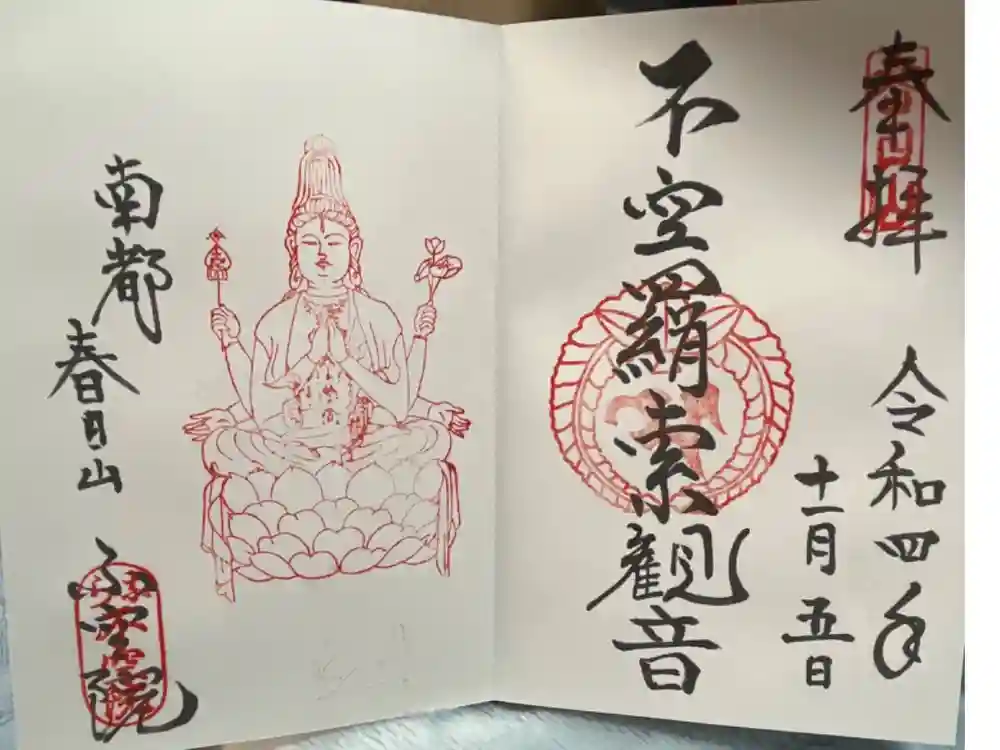 奉拝
令和四年
十一月五日
不空羂索観音
南都
春日山
不空院